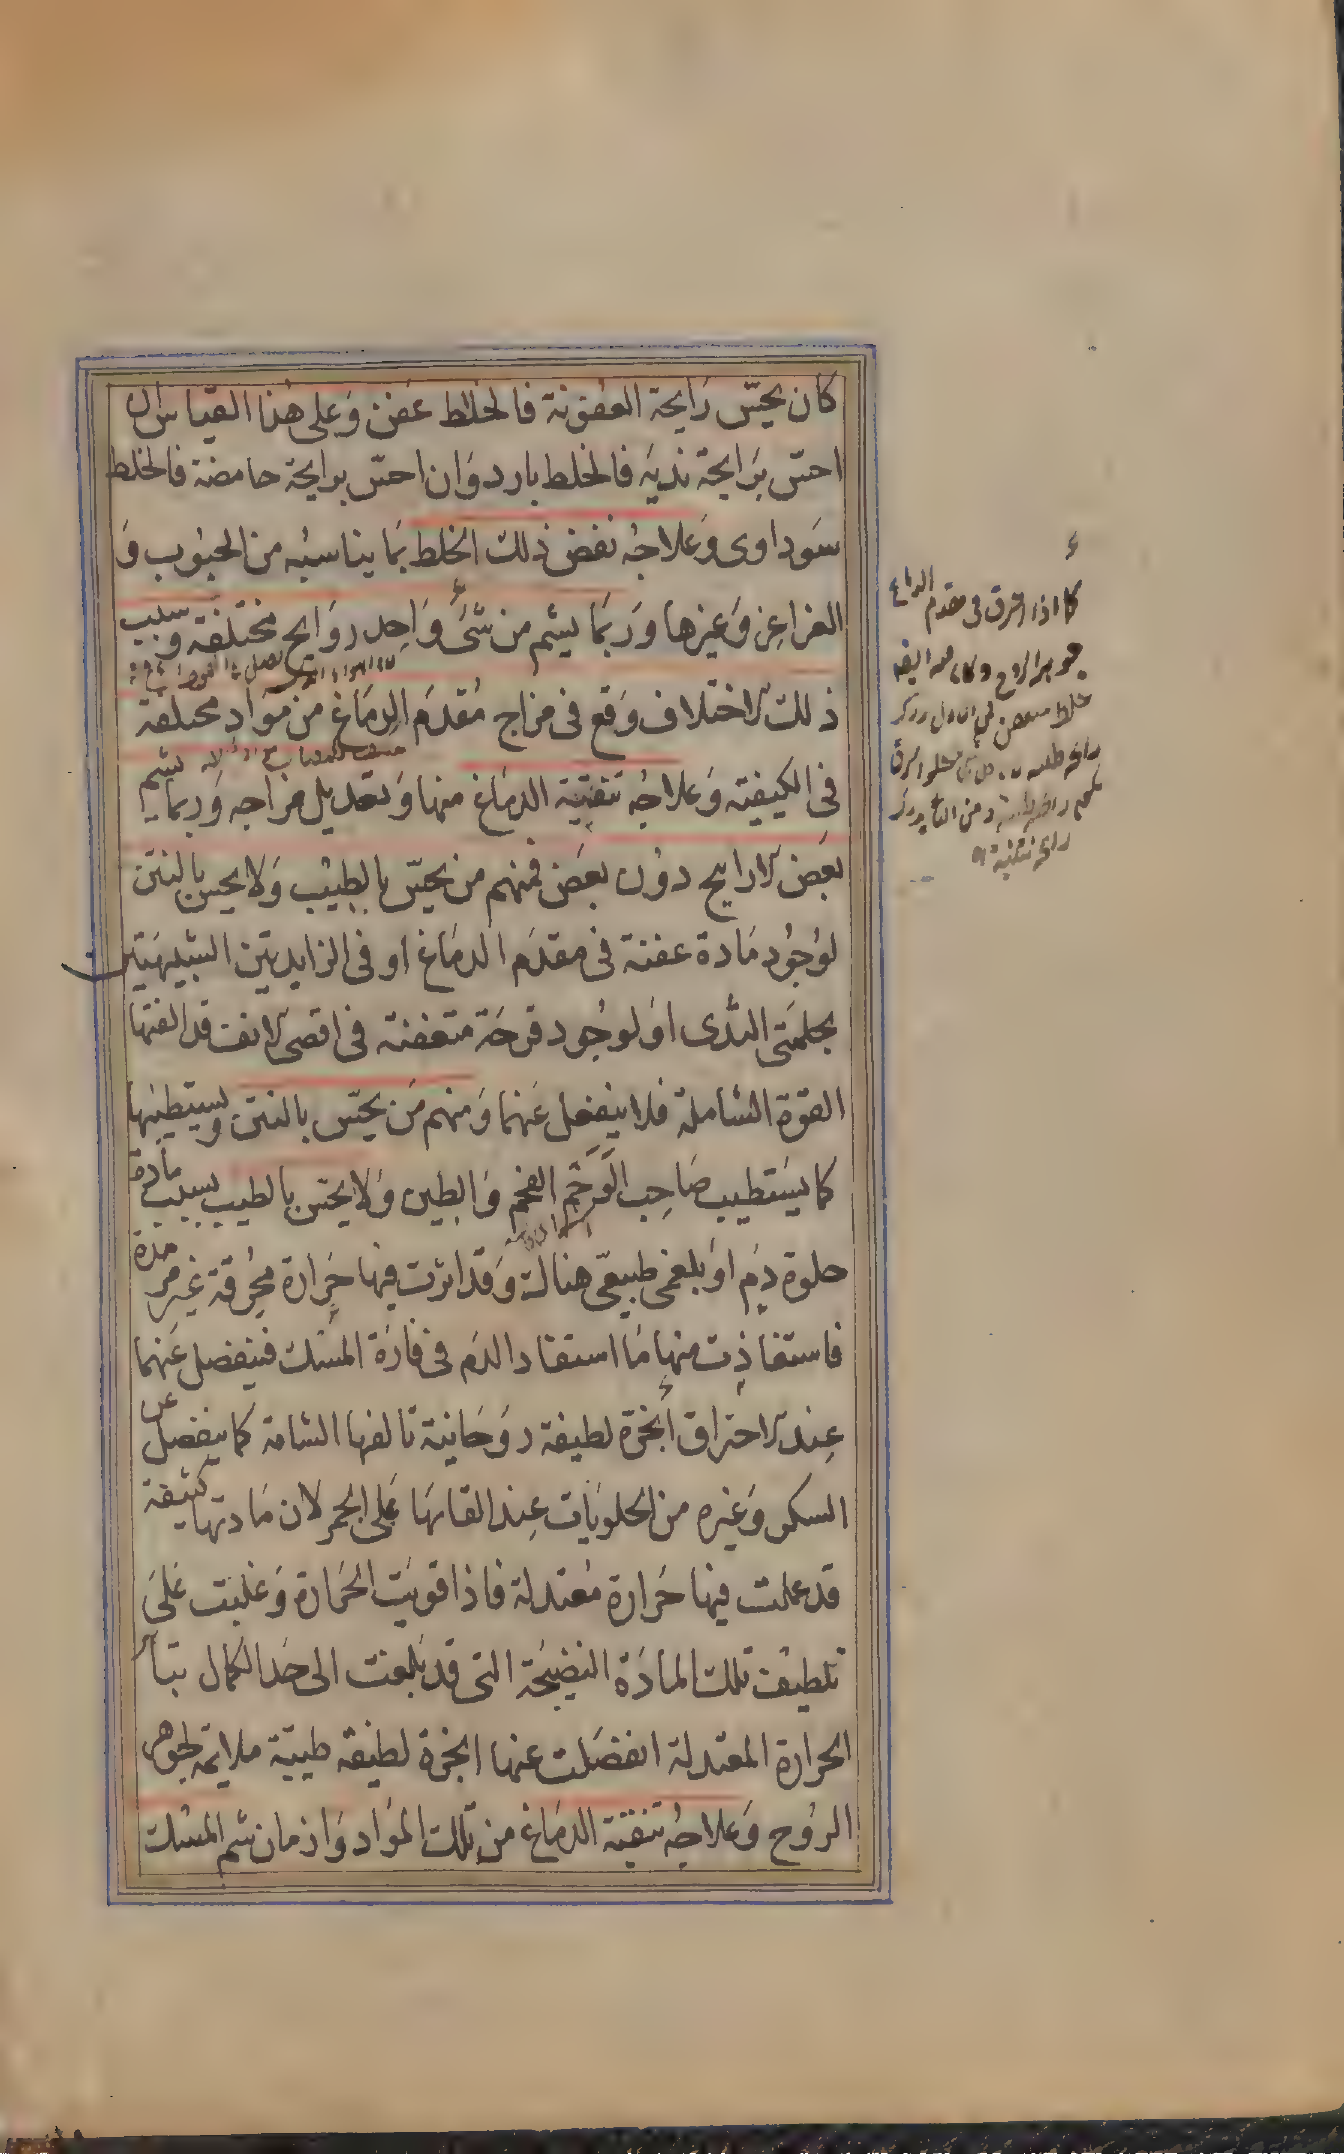 كان يحسّ رَايحة العفونة فالخلط عَفن وَعلى هٰذا القياس ان
احسّ بَرايحة نديَه فالخلط بارد وَان احسّ برايحة حامضة فالخلط
سَوداوى وَعلاجُه نفض ذلك الخلط بمَا يناسبُه من الحبوب وَ
الغراغِر وَغيرها وَربمَا يشم من شئ وَاحِد روَايح مختلفة وسبب
ذلك الاختلاف وَقع فى مزاج مُقدمَ الدِمَاغ من موَادِ مختلفة
فى الكيفيته وَعلاجُه تنقيَة الدمَاغ منها وَتعديل مزاجه وَربما يشم
بَعض الاراييح دوُن بعَض فمنهم من يحسّ بالطيب وَلا يحس بالنتن
لوُجُود مَادة عفنة فى مقدمَ الدمَاغ او فى الزايدتين الشبيهَتين
بحلمتَى الثدى اوَ لوجُود قرحَة متعفنة فى اقصى الانف قد الفتها
القوة الشاملة فلا ينفعل عَنها وَمنهم مَن يحسّ بالنتن ويستطيبها
كما يستَطيب صَاحِب الوَحَم الفحم وَالطين وَلا يحسّ بالطيب بسبب مادة
حلوة دَم اوَ بلغمى طبيعّى هنالك وَقد اثرت فيها حَرارة محُرقة غير مرمدة
فاستفاذت منها مَا استفاد الدَم فى فارَة المسَك فينفصل عَنها
عِند الاحتراق أبخرة لطيفة روَحَانية تالفها الشامة كما ينفصل عن
السكر وَغيره من الحلويَات عِند القايهَا عَلى الجمر لان مَادتها كثيفة
قد عملت فيها حَرارة مُعتدلة فاذا قويَت الحَرارة وَغلبَت عَلىَ
تلطيف تلك المادَة النضيجَة التى قد بَلغت الى حَد الكمال بتأثر
الحرارة المعتدلة انفصَلت عنها ابخرة لطيفة طيبَة ملايمة لجوهر
الروُح وَعلاجُه تنقية الدمَاغ من تلك الموَاد وَادمان شم المسُك
كما اذا احترق فى مقدم الدماغ